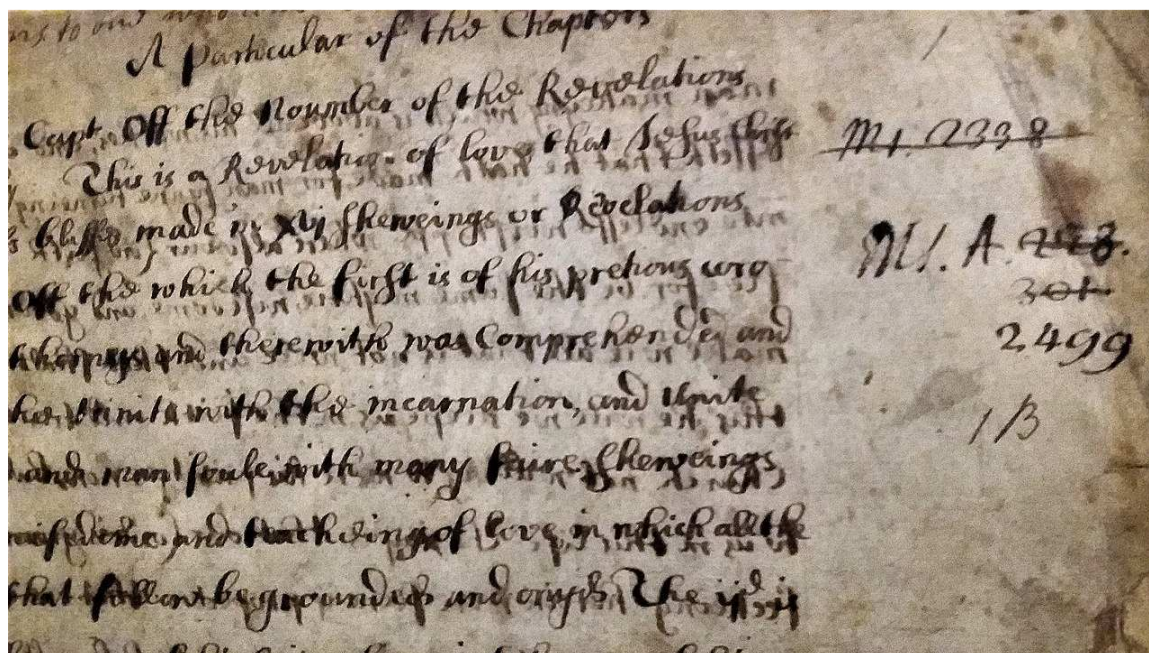 to and who
A Particular of the Chapters
1
Capt. Off the Noumber of the Revelations
This is a Revelation of love that Jesus Christ
Ms. 2338
blisse made in xvi sheweings or Revelations
Ms. A. 223.
Off the which the first is of his pretious crow
301
2499
and therewith was Comprehended and
the trinite with the incarnation, and Unite
1/3
and man soule with many faire sheweings
wisedome and teacheing of love in which all the
that follow be grounded and onyd. The iid. is